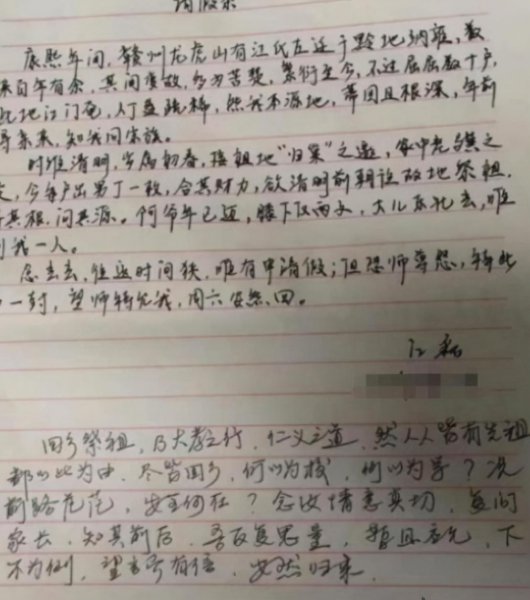 请假条
康熙年间,赣州龙虎山有江氏左迁于黔地纳雍,数
来百年有余,其间变故,多为苦楚,繁衍至今,不过屈屈数十户,
此地江门奄,人丁益疏稀,然我本源地,蒂固且根深,年前
寻亲来,知我同宗族。
时维清明,岁属初春,接祖地“归宗”之邀,家中老与兼之
定,今每户出男丁一枚,合其财力,欲清明前期诣故地祭祖,
其根,问其源。何爷年已迈,膝下仅两女,大儿东北去,唯
我一人。
急去去,往返时间狭,唯有申请假;但恐师尊怨,特此
一封,望师特允我,周六安然回。
江
回乡祭祖,乃大孝之行,仁义之道,然人人皆有先祖
都以此为由,尽皆回乡,何以为校,何以为学?况
前路茫茫,安全何在?念汝情意真切,复问
家长,知其前后,吾反复思量,暂且应允,下
不为例,望言而有信,安然归来。